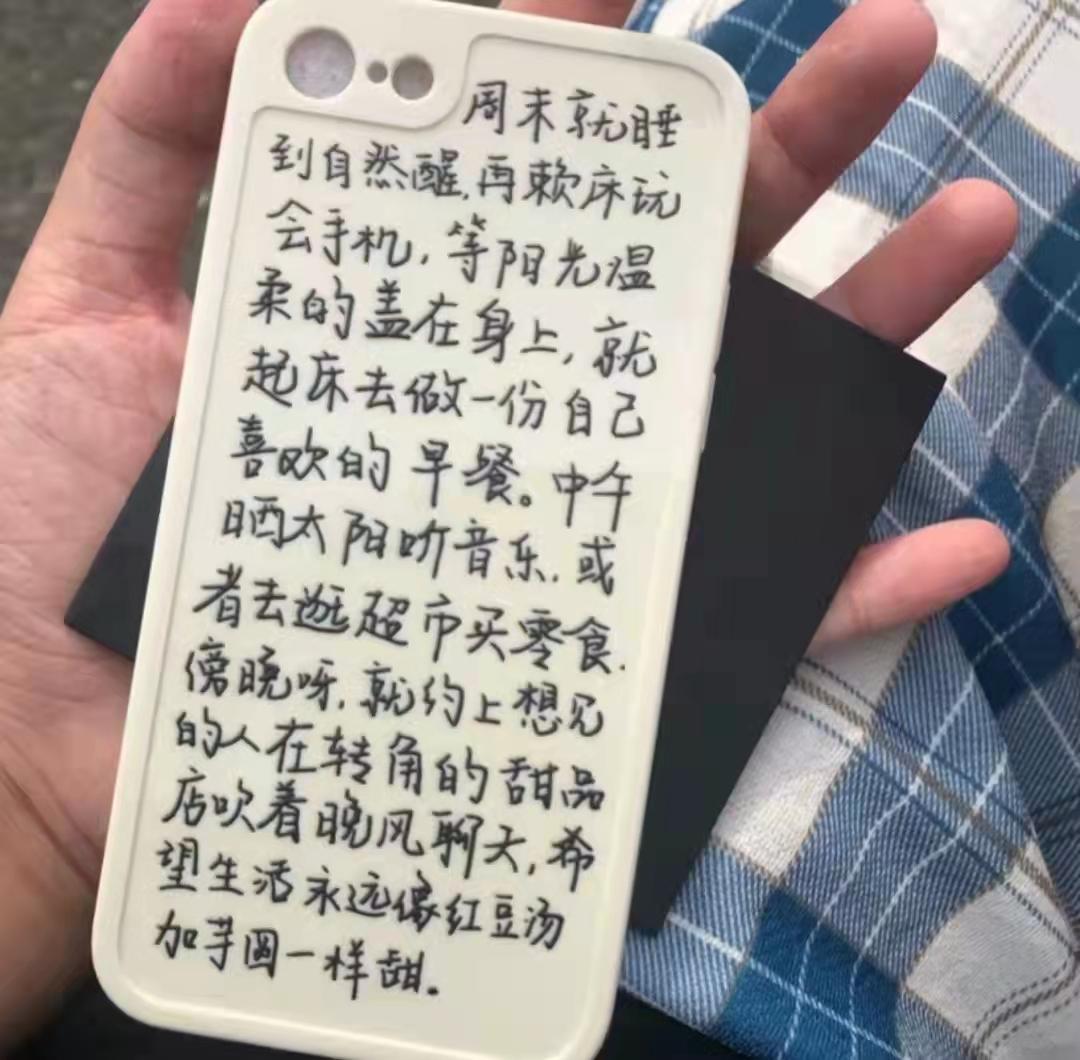 周末就睡
到自然醒,再赖床玩
会手机,等阳光温
柔的盖在身上,就
起床去做一份自己
喜欢的早餐。中午
晒太阳听音乐,或
者去逛超市买零食.
傍晚呀,就约上想见
的人在转角的甜品
店吹着晚风聊天,希
望生活永远像红豆汤
加芋圆一样甜.